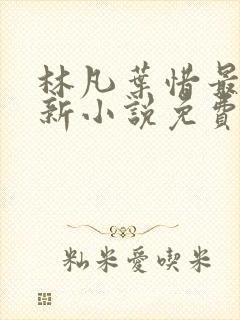 林凡葉惜最
新小說免費
籼米愛喫米